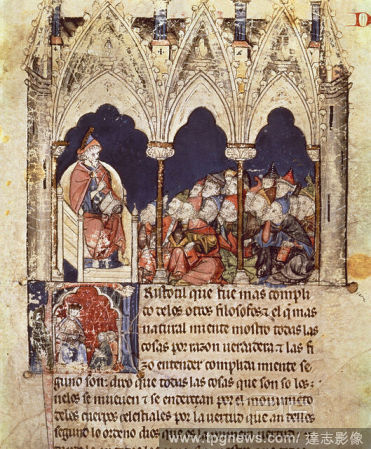 D
Aristotil que fue mas compli
do delos otros filosofos ⁊ el q̃ mas
natural miente mostro todas las
cosas por razon uerdadera ⁊ las fi
zo entender complida miente se
gund son ⁊ dixo que todas las cosas que son so los
cielos se mueuen ⁊ se enderetan por el mouimiento
delos cuerpos celestiales por la uertud que an dellos
segund lo ordeno dios que es la primera uertud
www.tpgnews.com / 達志影像